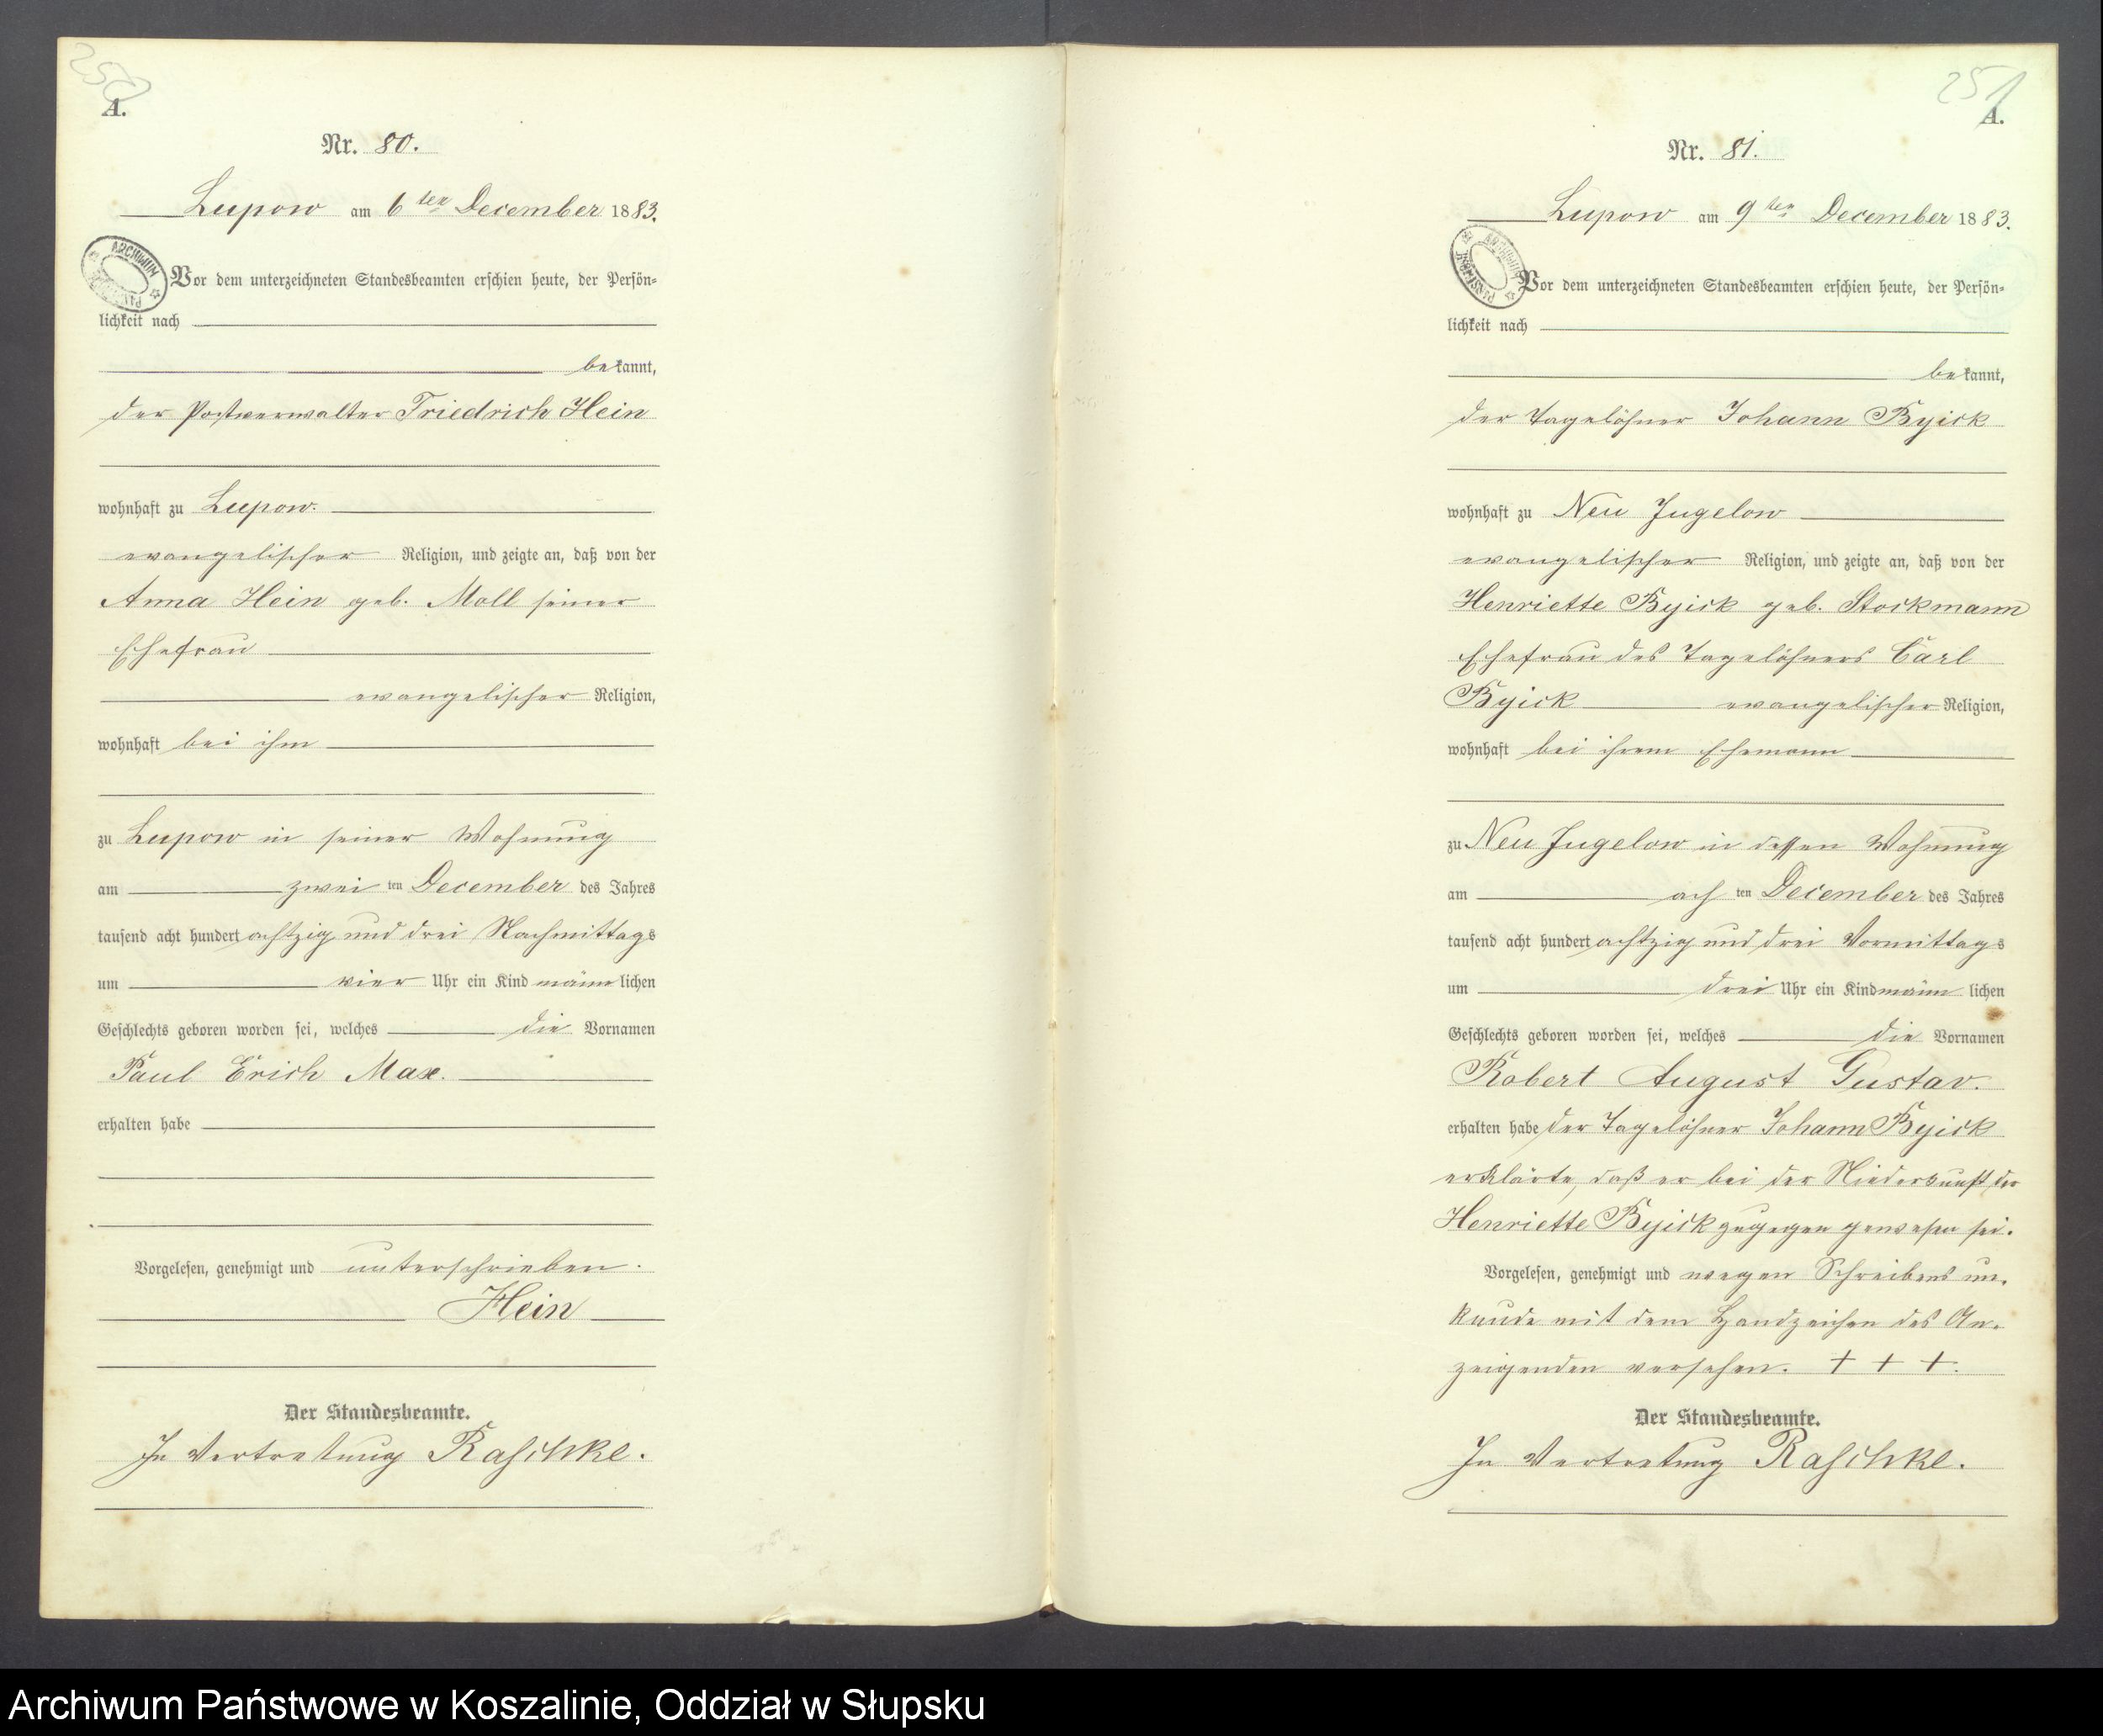 250
A.
Nr. 80.
Lupow am 6ten December 1883.
Vor dem unterzeichneten Standesbeamten erschien heute, der Persön-
lichkeit nach
bekannt,
der Postverwalter Friedrich Hein
wohnhaft zu Lupow.
evangelischer Religion, und zeigte an, daß von der
Anna Hein geb. Moll seiner
Ehefrau
evangelischer Religion,
wohnhaft bei ihm
zu Lupow in seiner Wohnung
am zwei ten December des Jahres
tausend acht hundert achtzig und drei Nachmittags
um vier Uhr ein Kind männlichen
Geschlechts geboren worden sei, welches die Vornamen
Paul Erich Max.
erhalten habe
Vorgelesen, genehmigt und unterschrieben.
Hein
Der Standesbeamte.
In Vertretung Raschke.
251
A.
Nr. 81.
Lupow am 9ten December 1883.
ARCHIWUM
Vor dem unterzeichneten Standesbeamten erschien heute, der Persön-
lichkeit nach
bekannt,
der Tagelöhner Johann Byick
wohnhaft zu Neu Jugelow
evangelischer Religion, und zeigte an, daß von der
Henriette Byick geb. Stockmann
Ehefrau des Tagelöhners Carl
Byick evangelischer Religion,
wohnhaft bei ihrem Ehemann
zu Neu Jugelow in dessen Wohnung
am ach ten December des Jahres
tausend acht hundert achtzig und drei Vormittags
um drei Uhr ein Kind männlichen
Geschlechts geboren worden sei, welches die Vornamen
Robert August Gustav.
erhalten habe der Tagelöhner Johann Byick
erklärte, daß er bei der Niederkunft der
Henriette Byick zugegen gewesen sei.
Vorgelesen, genehmigt und wegen Schreibens un-
kunde mit dem Handzeichen des An-
zeigenden versehen. + + +.
Der Standesbeamte.
In Vertretung Raschke.
Archiwum Państwowe w Koszalinie, Oddział w Słupsku